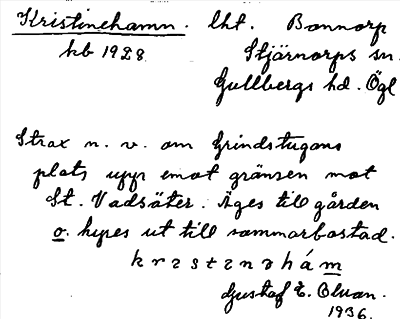 Kristinehamn. lht. Bonnorp
hb 1928 Stjärnorps sn.
Gullbergs hd. Ögl
Strax n. v. om Grindstugans
plats uppe emot gränsen mot
St. Vadsäter. Äges till gården
o. hyres ut till sommarbostad.
krɪstɪnəhám
Gustaf E. Olsson.
1936.